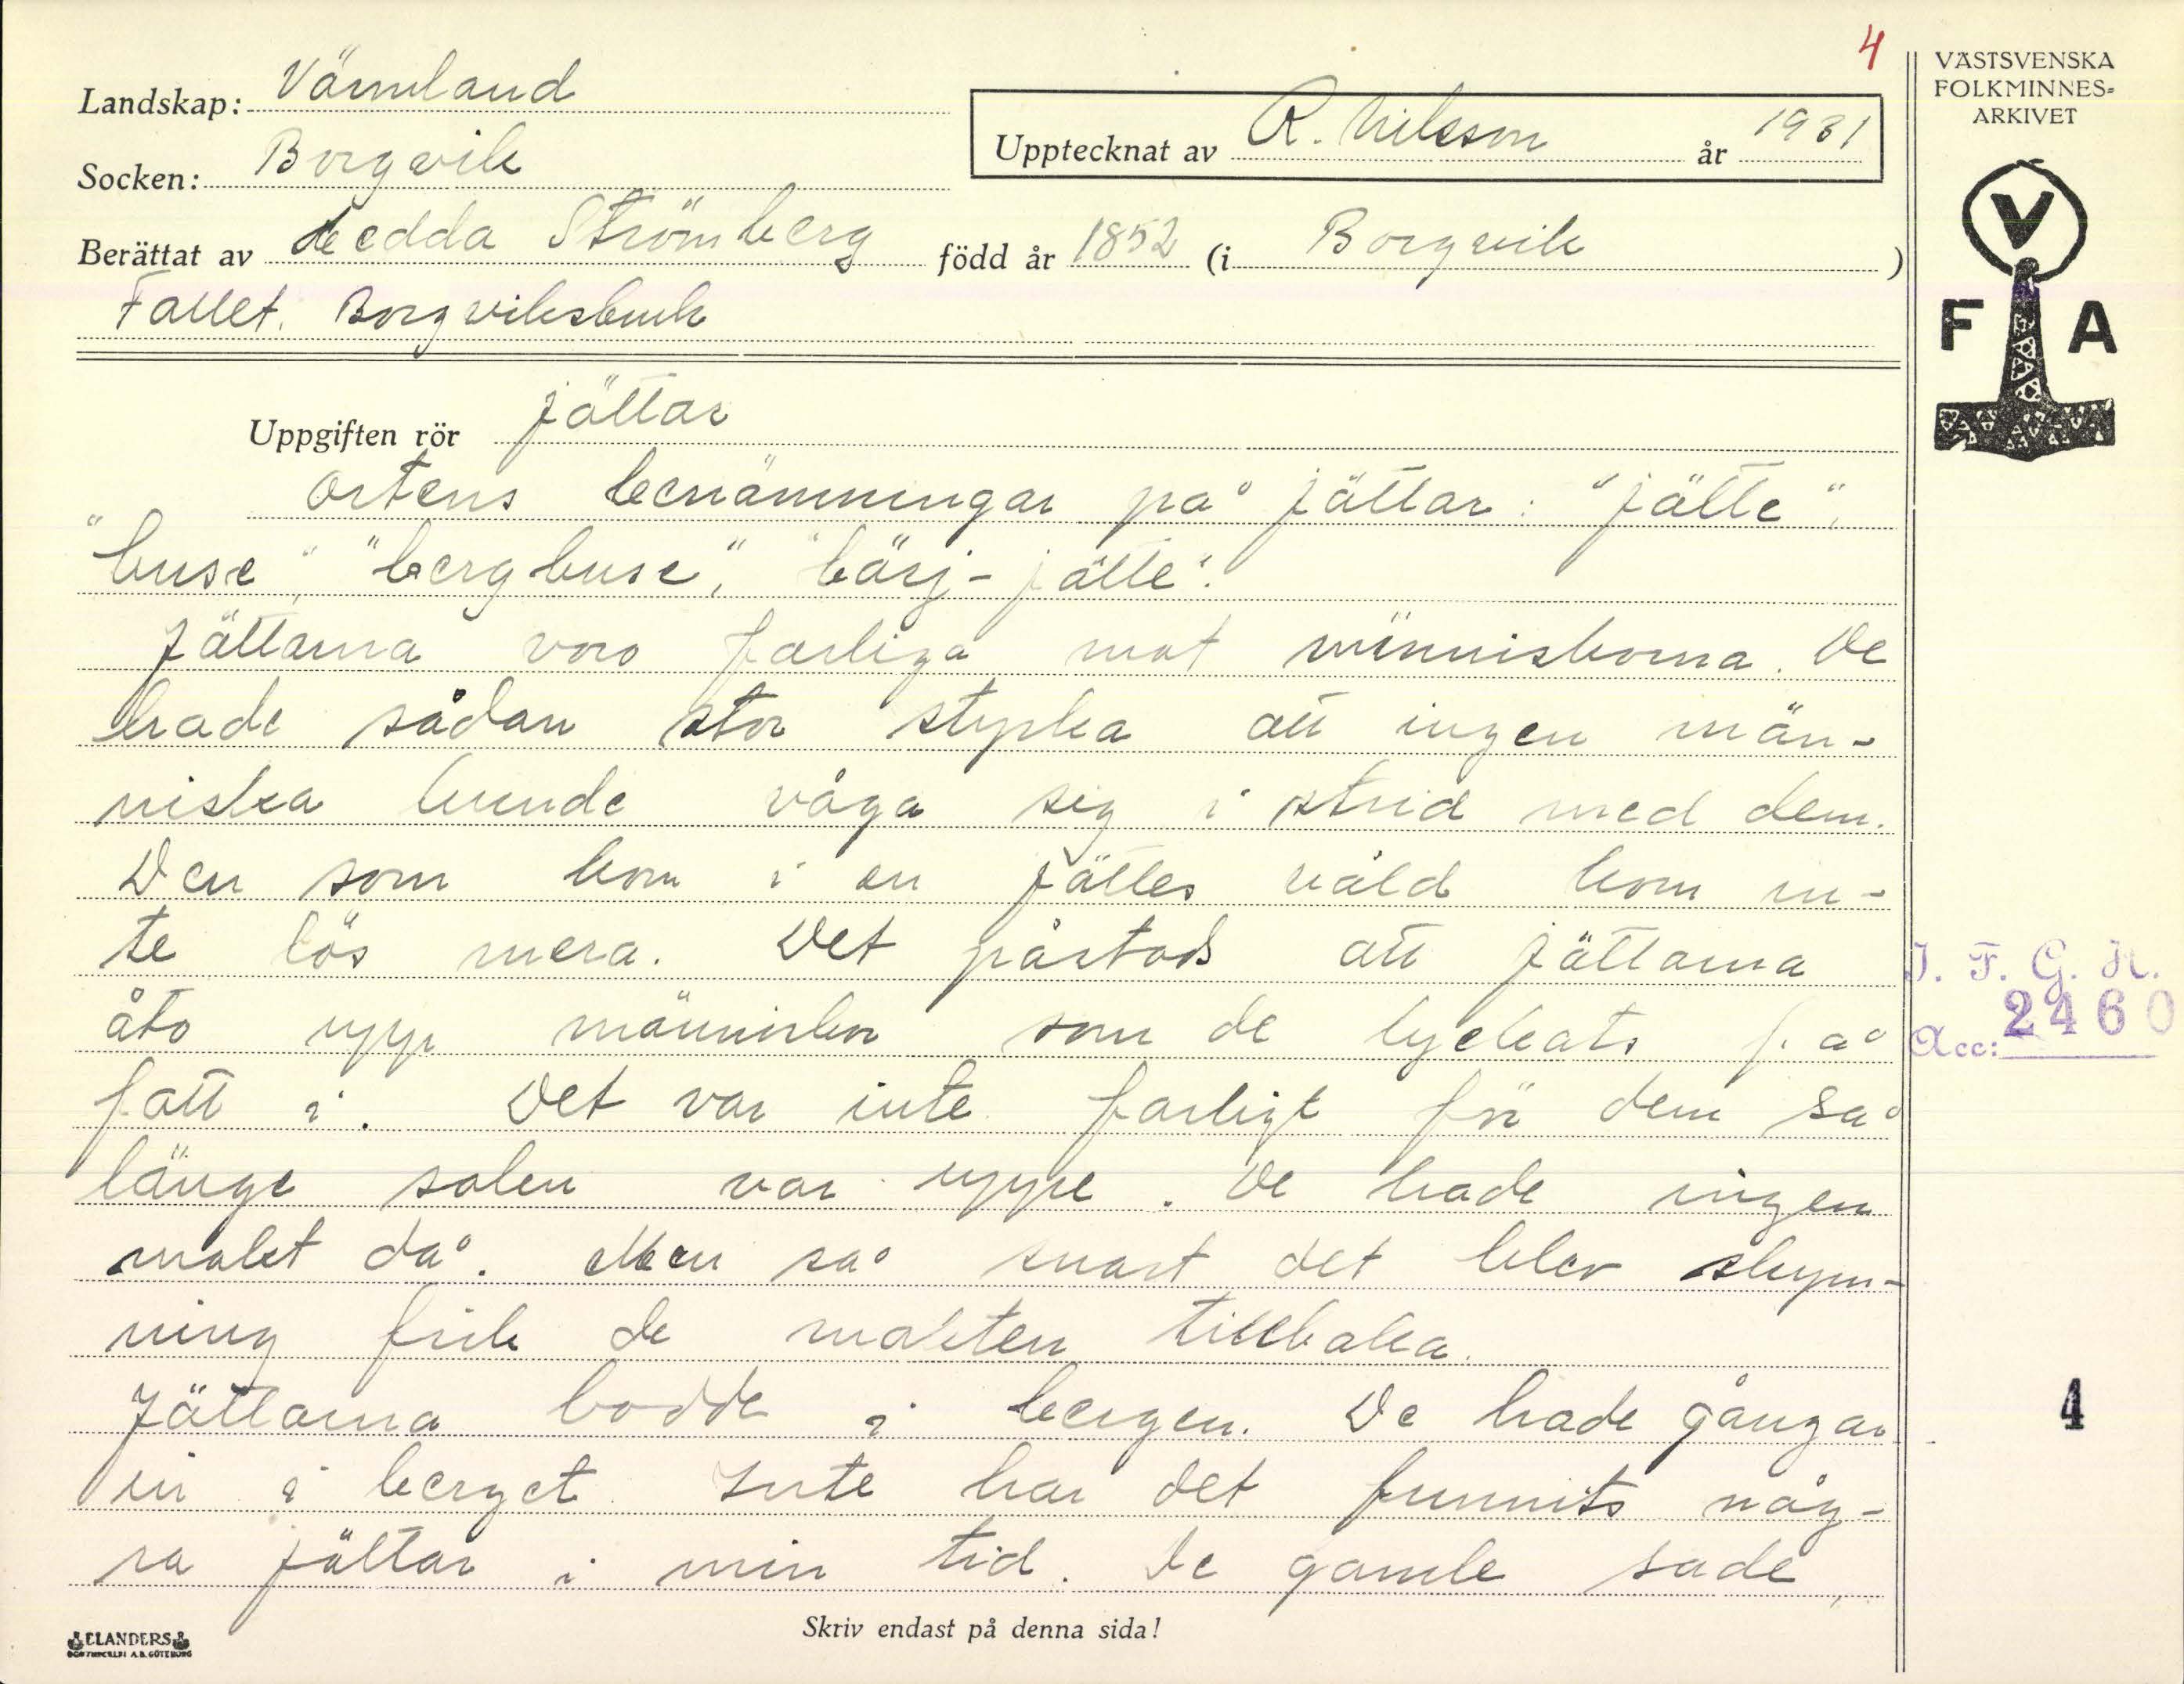 4
VÄSTSVENSKA
FOLKMINNES-
ARKIVET
Landskap: Värmland
Upptecknat av R. Nilsson år 1931
Socken: Borgvik
Berättat av Hedda Strömberg född år 1852 (i Borgvik)
Fallet. Borgviksbruk
V
F A
Uppgiften rör jättar
Ortens benämningar på jättar: "jätte",
"buse", "bergbuse", "bärj-jätte".
Jättarna voro farliga mot människorna. De
hade sådan stor styrka att ingen män-
niska kunde våga sig i strid med dem.
Den som kom i en jättes våld kom in-
te lös mera. Det påstods att jättarna
åto upp människor som de lyckats få
fatt i. Det var inte farligt för dem så
länge solen var uppe. De hade ingen
makt då. Men så snart det blev skym-
ning fick de makten tillbaka.
Jättarna bodde i bergen. De hade gångar
in i berget. Inte har det funnits någ-
ra jättar i min tid. De gamle sade,
I. F. G. H.
Acc: 2460
4
ELANDERS
Skriv endast på denna sida!